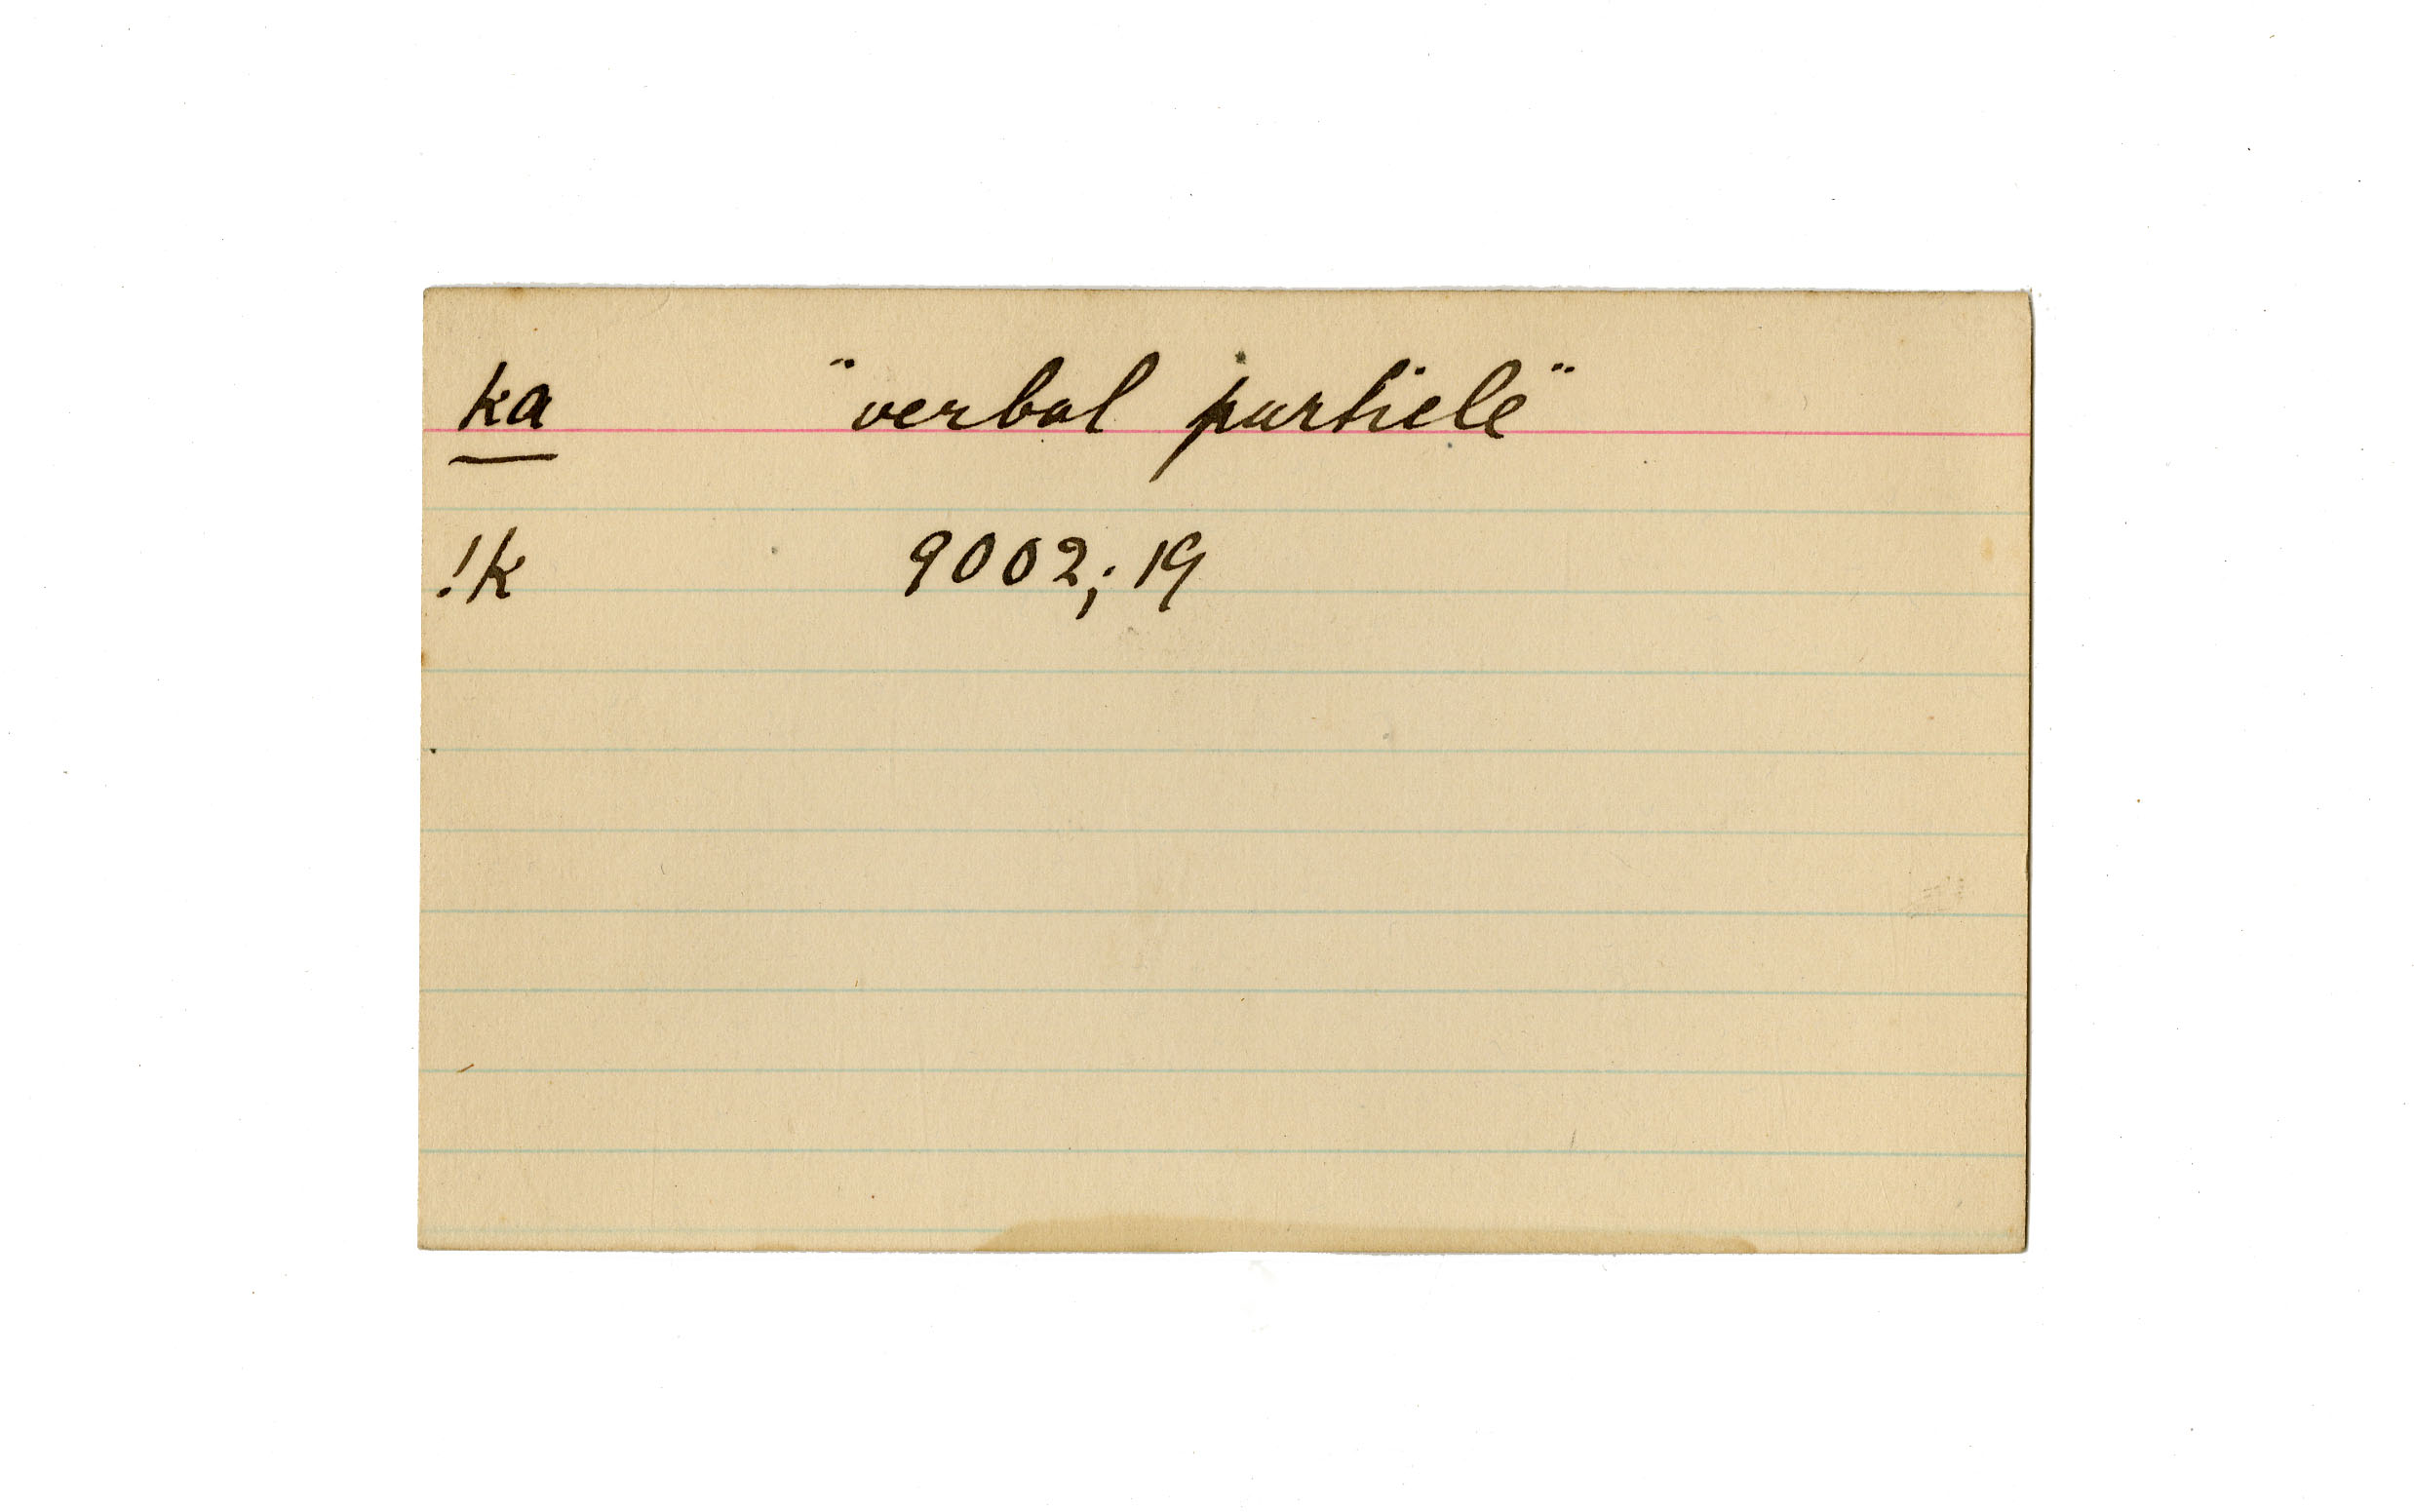 ka "verbal particle"
!k 9002; 19